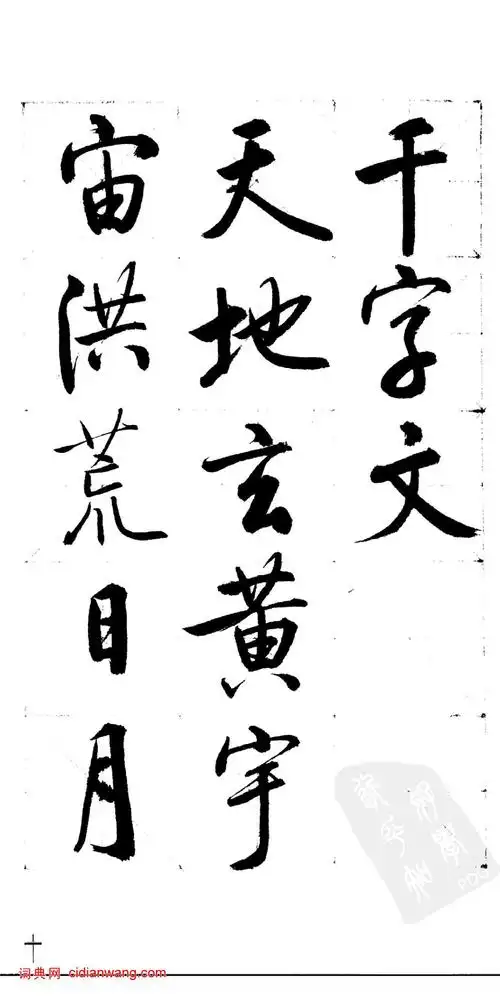 千字文
天地玄黄宇
宙洪荒日月
十
词典网 cidianwang.com